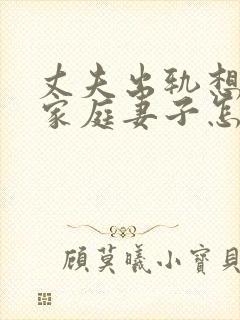 丈夫出轨想
家庭妻子怎
顾莫曦小寶貝